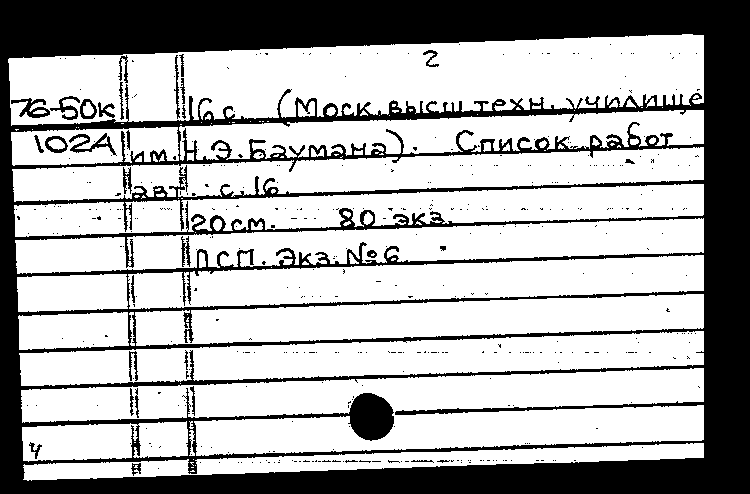 2
76-50к 16 с. (Моск. высш. техн. училище
102А им. Н. Э. Баумана). Список работ
авт.: с. 16.
20 см. 80 экз.
ДСП. Экз. № 6.
ч